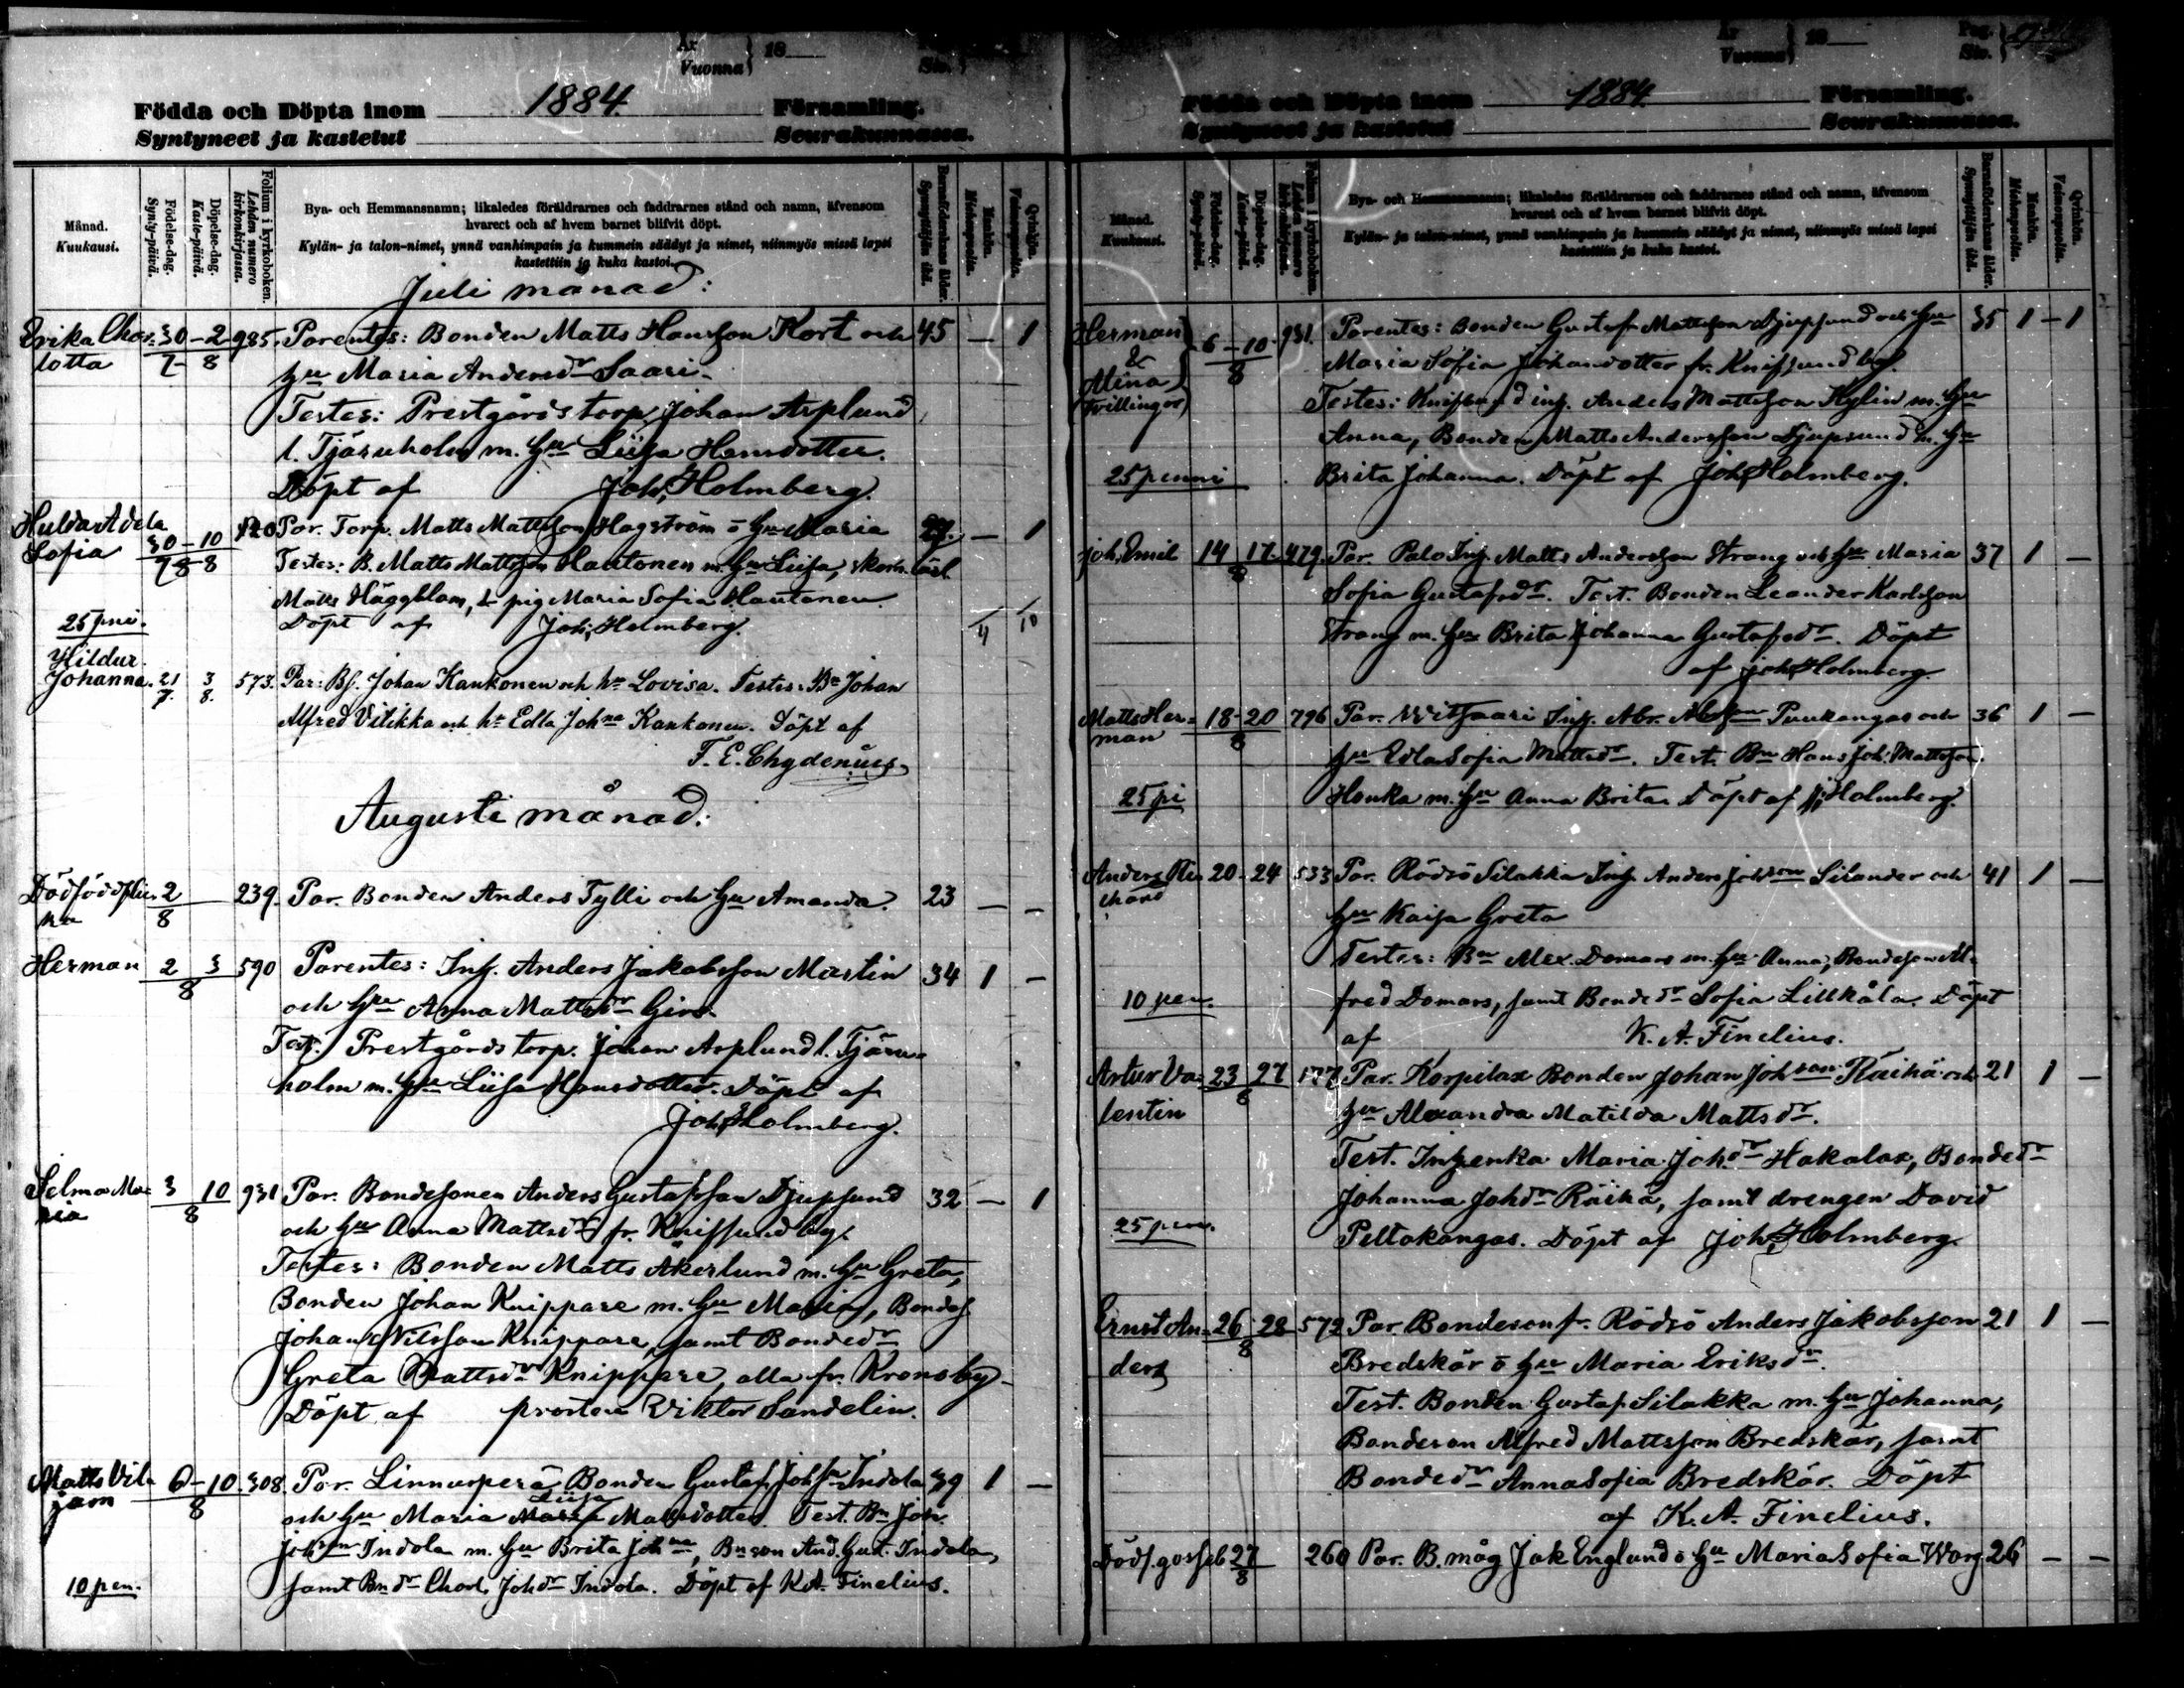 År
Vuonna } 18
Födda och Döpta inom 1884. Församling.
Syntyneet ja kastetut Seurakunnassa.
Månad.
Kuukausi.
Födelse-dag.
Synty-päivä.
Döpelse-dag.
Kaste-päivä.
Folium i kyrkoboken.
Lehden numero kirkonkirjassa.
Bya- och Hemmansnamn; likaledes föräldrarnes och faddrarnes stånd och namn, äfvensom
hvarest och af hvem barnet blifvit döpt.
Kylän- ja talon-nimet, ynnä vanhimpain ja kummein säädyt ja nimet, niinmyös missä lapsi
kastettiin ja kuka kastoi.
Barnaföderskans ålder.
Synnyttäjän ikä.
Mankön.
Miehenpuolia.
Qvinkön.
Vaimonpuolia.
Juli månad:
Erika Char- 30 - 2 985. Parentes: Bonden Matts Hansson Kort och 45 — 1
lotta 7 8 hu Maria Andersdr Saari.
Testes: Prestgårds torp. Johan Asplund
l. Tjäruholm m. hu Liisa Hansdotter.
Döpt af Joh. Holmberg.
Hulda Adela
Sofia 30 - 10 120 Par. Torp. Matts Mattsson Hagström o hu Maria 27. — 1
7 8 Testes: B. Matts Mattsson Hautonen m. hu Liisa,
Matts Häggblom, & pig. Maria Sofia Hautonen.
25 pni. Döpt af Joh. Holmberg. 4 10
Hildur
Johanna. 21 3 573. Par: Bs. Johan Kankonen och hu Lovisa. Testes: Bn Johan
7. 8. Alfred Vitikka och hu Edla Johna Kankonen. Döpt af
F. E. Chydenius.
Augusti månad:
Dödfödd flic- 2 239. Par. Bonden Anders Tylli och hu Amanda. 23 — —
ka 8
Herman 2 3 590 Parentes: Inh. Anders Jakobsson Martin 34 1 —
8 och hu Anna Mattsdr Girs.
Test. Prestgårds torp. Johan Asplund l. Tjäru-
holm m. hu Liisa Hansdotter. Döpt af
Joh. Holmberg.
Selma Ma- 3 10 931 Par. Bondesonen Anders Gustafsson Djupsund 32 — 1
ria 8 och hu Anna Mattsdr fr. Knifsund by.
Testes: Bonden Matts Åkerlund m. hu Greta,
Bonden Johan Knippare m. hu Maria, Bondes.
Johan Nilsson Knippare, samt Bondedr
Greta Mattsdr Knippare, alla fr. Kronoby
Döpt af prosten Viktor Sandelin.
Matts Vil- 6 - 10 308. Par. Linnusperä Bonden Gustaf Johsn Indola 39 1 —
jam 8 och hu Maria Liisa Mattsdotter. Test. Bn Joh.
Johsn Indola m. hu Brita Johna, Bnson And. Gust. Indola,
10 pen. samt Bndr Charl. Johdr Indola. Döpt af K. A. Finelius.
År
Vuonna } 18 Pag.
Siv.
Födda och Döpta inom 1884. Församling.
Syntyneet ja kastetut Seurakunnassa.
Månad.
Kuukausi.
Födelse-dag.
Synty-päivä.
Döpelse-dag.
Kaste-päivä.
Folium i kyrkoboken.
Lehden numero kirkonkirjassa.
Bya- och Hemmansnamn; likaledes föräldrarnes och faddrarnes stånd och namn, äfvensom
hvarest och af hvem barnet blifvit döpt.
Kylän- ja talon-nimet, ynnä vanhimpain ja kummein säädyt ja nimet, niinmyös missä lapsi
kastettiin ja kuka kastoi.
Barnaföderskans ålder.
Synnyttäjän ikä.
Mankön.
Miehenpuolia.
Qvinkön.
Vaimonpuolia.
Herman 6 - 10 931. Parentes: Bonden Gustaf Mattsson Djupsund och hu 35 1 - 1
& 8 Maria Sofia Johansdotter fr. Knifsund by.
Alina Testes: Knifsund inh. Anders Mattsson Kylin m. hu
(tvillingar) Anna, Bonden Matts Andersson Djupsund m. hu
25 penni Brita Johanna. Döpt af Joh. Holmberg.
Joh. Emil 14 17 479. Par. Palo Inh. Matts Andersson Strang och hu Maria 37 1 —
8 Sofia Gustafsdr. Test. Bonden Leander Karlsson
Strang m. hu Brita Johanna Gustafsdr. Döpt
af Joh. Holmberg.
Matts Her- 18 - 20 796 Par. Witsaari Inh. Abr. Abrson Puukangas och 36 1 —
man 8 hu Edla Sofia Mattsdr. Test. Bn Hans Joh. Mattsson
25 pi Honka m. hu Anna Brita. Döpt af J. Holmberg.
Anders Ri- 20 - 24 533 Par. Rödsö Silakka Inh. Anders Johson Silander och 41 1 —
chard hu Kaisa Greta
Testes: Bn Alex. Domars m. hu Anna, Bondeson Al-
10 pen. fred Domars, samt Bondedr Sofia Lillkåla. Döpt
af K. A. Finelius.
Artur Va- 23 27 177 Par. Korpilax Bonden Johan Johson Räihä och 21 1 —
lentin 8 hu Alexandra Matilda Mattsdr.
Test. Inh.enka Maria Johdr Hakalax, Bondedr
Johanna Johdr Räihä, samt drengen David
25 pen. Peltokangas. Döpt af Joh. Holmberg.
Ernst An- 26 - 28 572 Par. Bondeson fr. Rödsö Anders Jakobsson 21 1 —
ders 8 Bredskär o hu Maria Eriksdr.
Test. Bonden Gustaf Silakka m. hu Johanna,
Bondeson Alfred Mattsson Bredskär, samt
Bondedr Anna Sofia Bredskär. Döpt
af K. A. Finelius.
Dödf. gosseb. 27 260 Par. B. måg Jak Englund o hu Maria Sofia Warg 26 — —
8